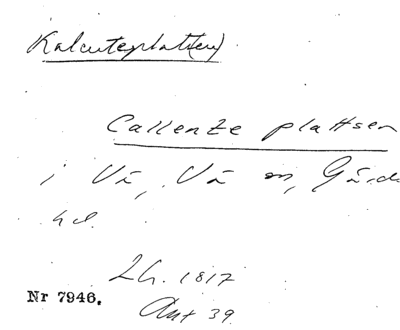 Kalcuteplatt(en)
Callenze plattsen
i Vä, Vä sn, Gärds
hd.
Lh. 1817
Nr 7946.
Akt 39